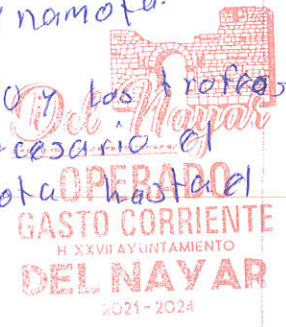 namota.
o y los trofeos
Del Nayar
cesario el
ota hasta el
OPERADO
GASTO CORRIENTE
H. XXVII AYUNTAMIENTO
DEL NAYAR
2021-2024